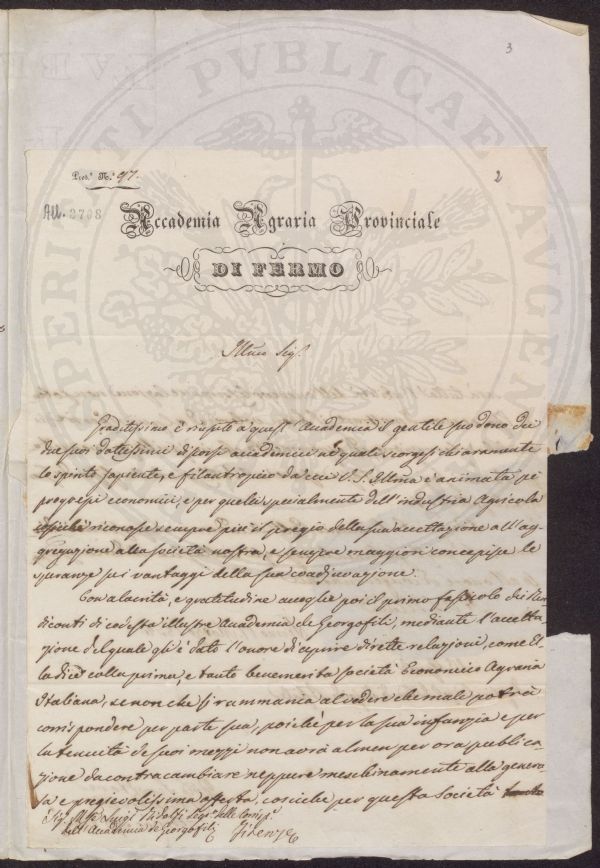 3
Prot.º N.º 97.
2
All. 2708
Accademia Agraria Provinciale
DI FERMO
Illmo Sigr.
Graditissimo è riuscito a quest' Accademia il gentile suo dono dei
due suoi dottissimi discorsi accademici ne' quali scorgesi chiaramente
lo spirito sapiente, e filantropico da cui V. S. Illma è animata pei
progressi economici, e per quelli specialmente dell' industria Agricola
riconosce sempre più il pregio della sua accettazione all' ag-
gregazione alla società nostra, e sempre maggiori concepisce le
speranze pei vantaggi della sua coadjuvazione.
Con alacrità, e gratitudine accoglie poi il primo fascicolo dei Ren-
diconti di codesta illustre Accademia de Georgofili, mediante l'accetta-
zione del quale gli è dato l'onore di aprire dirette relazioni, come El-
la dice colla prima, e tanto benemerita società Economico Agraria
Italiana, se non che si rammarica al vedere che male potrà
corrispondere per parte sua, poichè per la sua infanzia e per
la tenuità de suoi mezzi non avrà almen per ora pubblica-
zione da contracambiare neppure meschinamente alla genero-
sa e pregievolissima offerta, cosicchè per questa Società
Sig. Mse Luigi Ridolfi Segr. delle Corrisp.
dell' Accademia de Georgofili Firenze
PUBLICAE